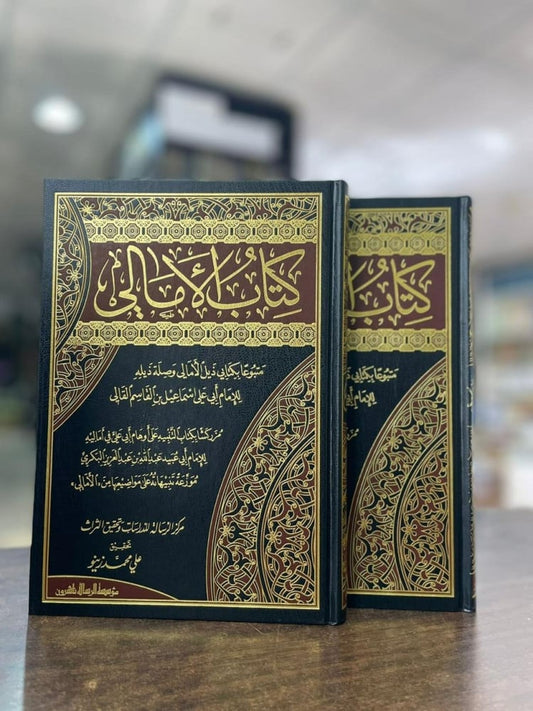 كتاب الأمالي
متبوعا بكتابي ذيل الأمالي وصلة ذيله
للإمام أبي علي إسماعيل بن القاسم القالي
مركشا بكتاب التنبيه على أوهام أبي علي في أماليه
للإمام أبي عبيد عبد الله بن عبد العزيز البكري
موزعة تنبيهاته على مواضيعها من «الأمالي»
مركز الرسالة للدراسات وتحقيق التراث
تحقيق
علي محمد زينو
مؤسسة الرسالة ناشرون
كتاب
متبوعا بكتابي ذيل
للإمام أبي علي